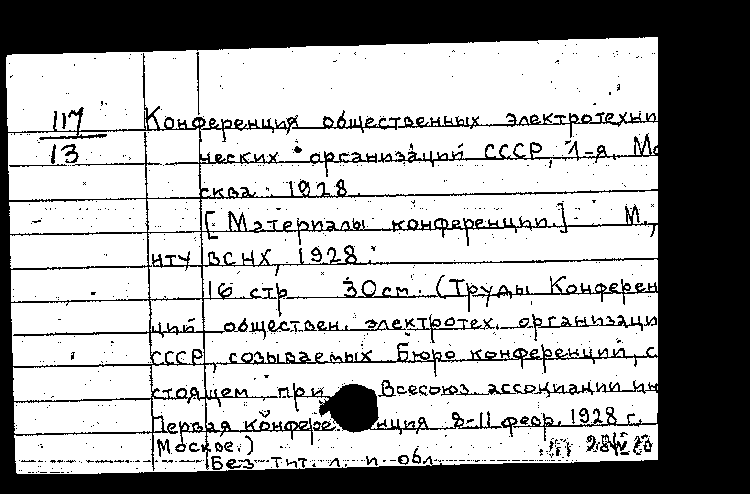 117
13
Конференция общественных электротехни
ческих организаций СССР, 1-я. Мо
сква. 1928.
[Материалы конференции.] М.,
НТУ ВСНХ, 1928.
16 стр 30см. (Труды Конферен
ций обществен. электротех. организаци
СССР, созываемых Бюро конференций, с
стоящем при Всесоюз. ассоциации ин
Первая конференция 8-11 февр. 1928 г.
Москве.)
Без тит. л. и обл.